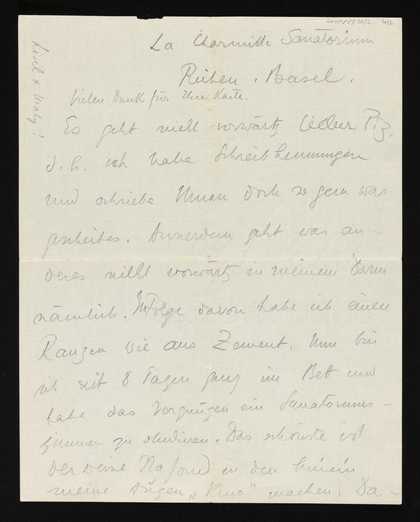 La Charmille Sanatorium
Riehen. Basel.
Vielen Dank für Ihre Karte.
Es geht nicht vorwärts lieber
d. h. ich habe Schreibhemmungen
und schriebe Ihnen doch so gern was
gescheites. Ausserdem geht was an-
deres nicht vorwärts in meinem Darm
nämlich. Infolge davon habe ich einen
Ranzen wie aus Zement. Nun bin
ich seit 8 Tagen ganz im Bett und
habe das Vergnügen ein Sanatoriums-
zimmer zu studieren. Das schönste ist
der weisse Plafond in den hinein
meine Augen „Kino" machen. Da-